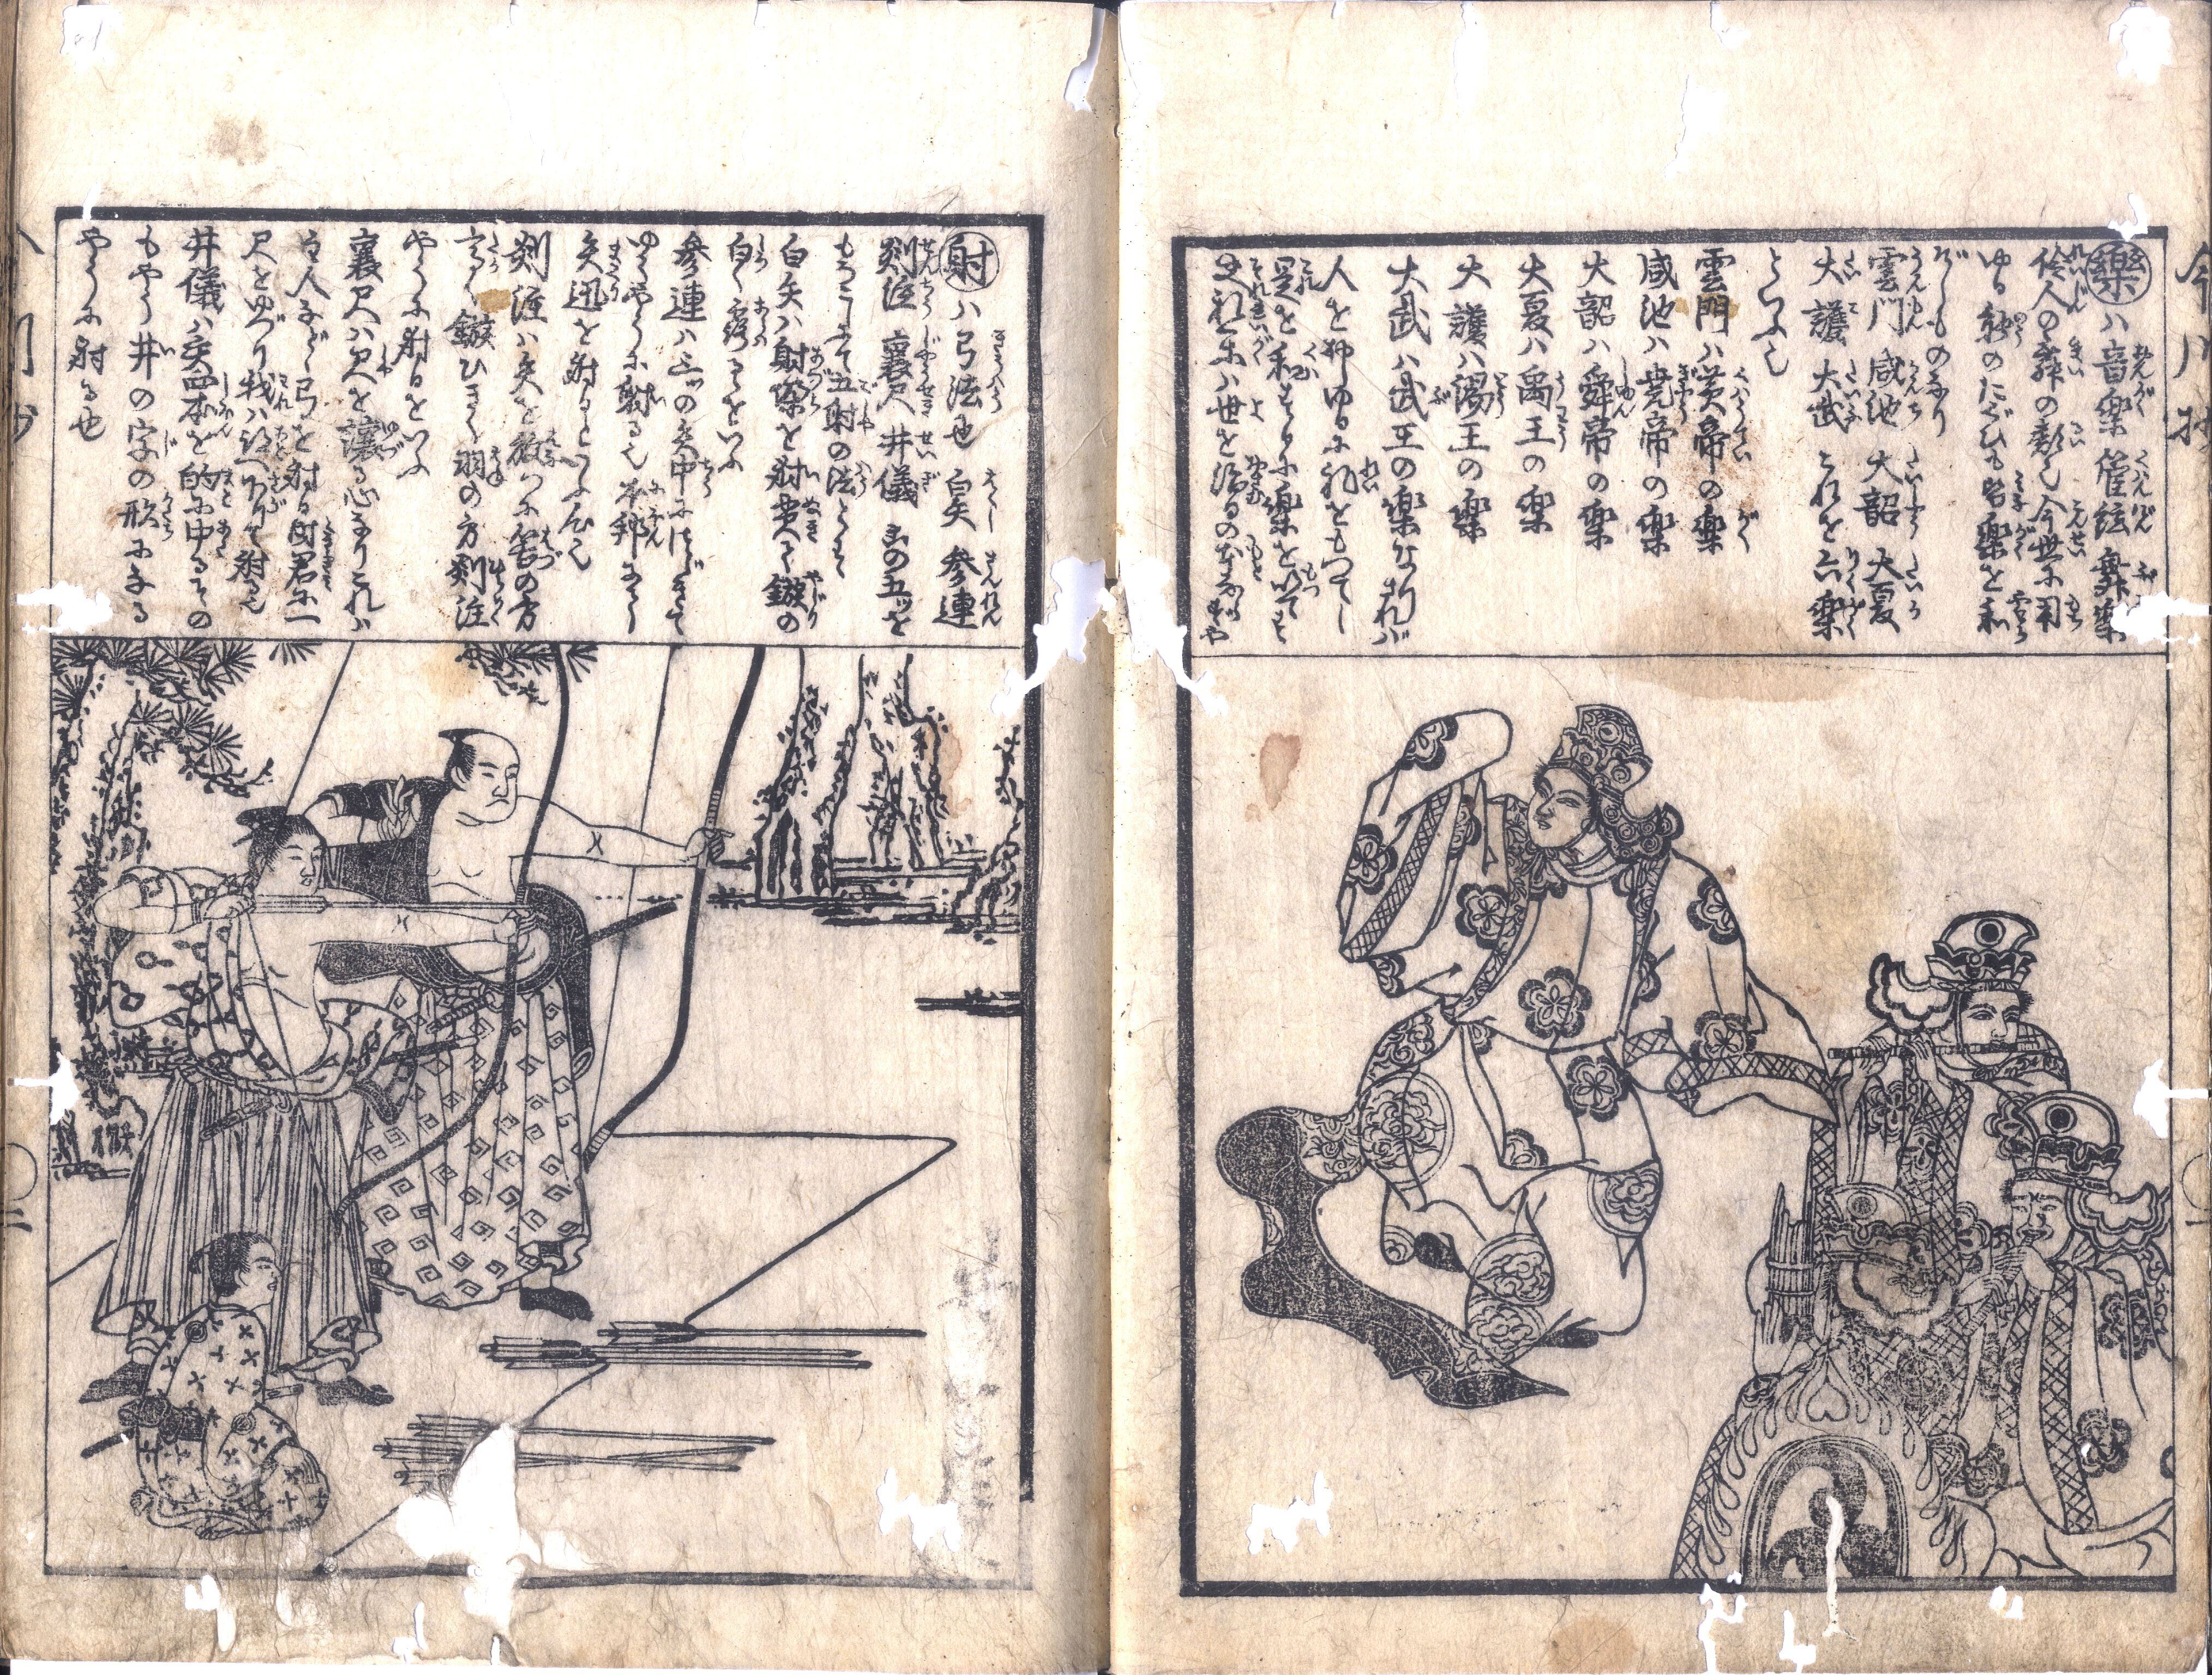 樂ハ音樂管絃舞樂
伶人の舞の類也今世に用
ゆる能のたぐひも皆樂を和
ぞしものなり
雲門 咸池 大韶 大夏
大護 大武 これを六樂
といふ也
雲門ハ黄帝の樂
咸池ハ堯帝の樂
大韶ハ舜帝の樂
大夏ハ禹王の樂
大護ハ湯王の樂
大武ハ武王の樂なりされバ
人を和ゆるに礼をもつてし
是を和するに樂を以てす
それ礼樂ハ世を治るの
射ハ弓法也 白矢 参連
剡注 襄尺 井儀 此の五ッを
もろこしにて五射の法とす
白矢ハ射垜を射貫て鏃の
白く露るゝをいふ
参連ハ三ッの矢中につゞきて
ゆくやうに射る也 本邦にて
矢廻を射るといふ心也
剡注ハ矢を放つに筈の方
高く鏃ひきく羽の方剡注
やうに射るをいふ
襄尺ハ尺を讓る心なりこれハ
主人など弓を射る時君に一
尺をゆづり我ハ跡へ下りて射る也
井儀ハ矢四本を的に中るその
もやう井の字の形になる
やうに射る也